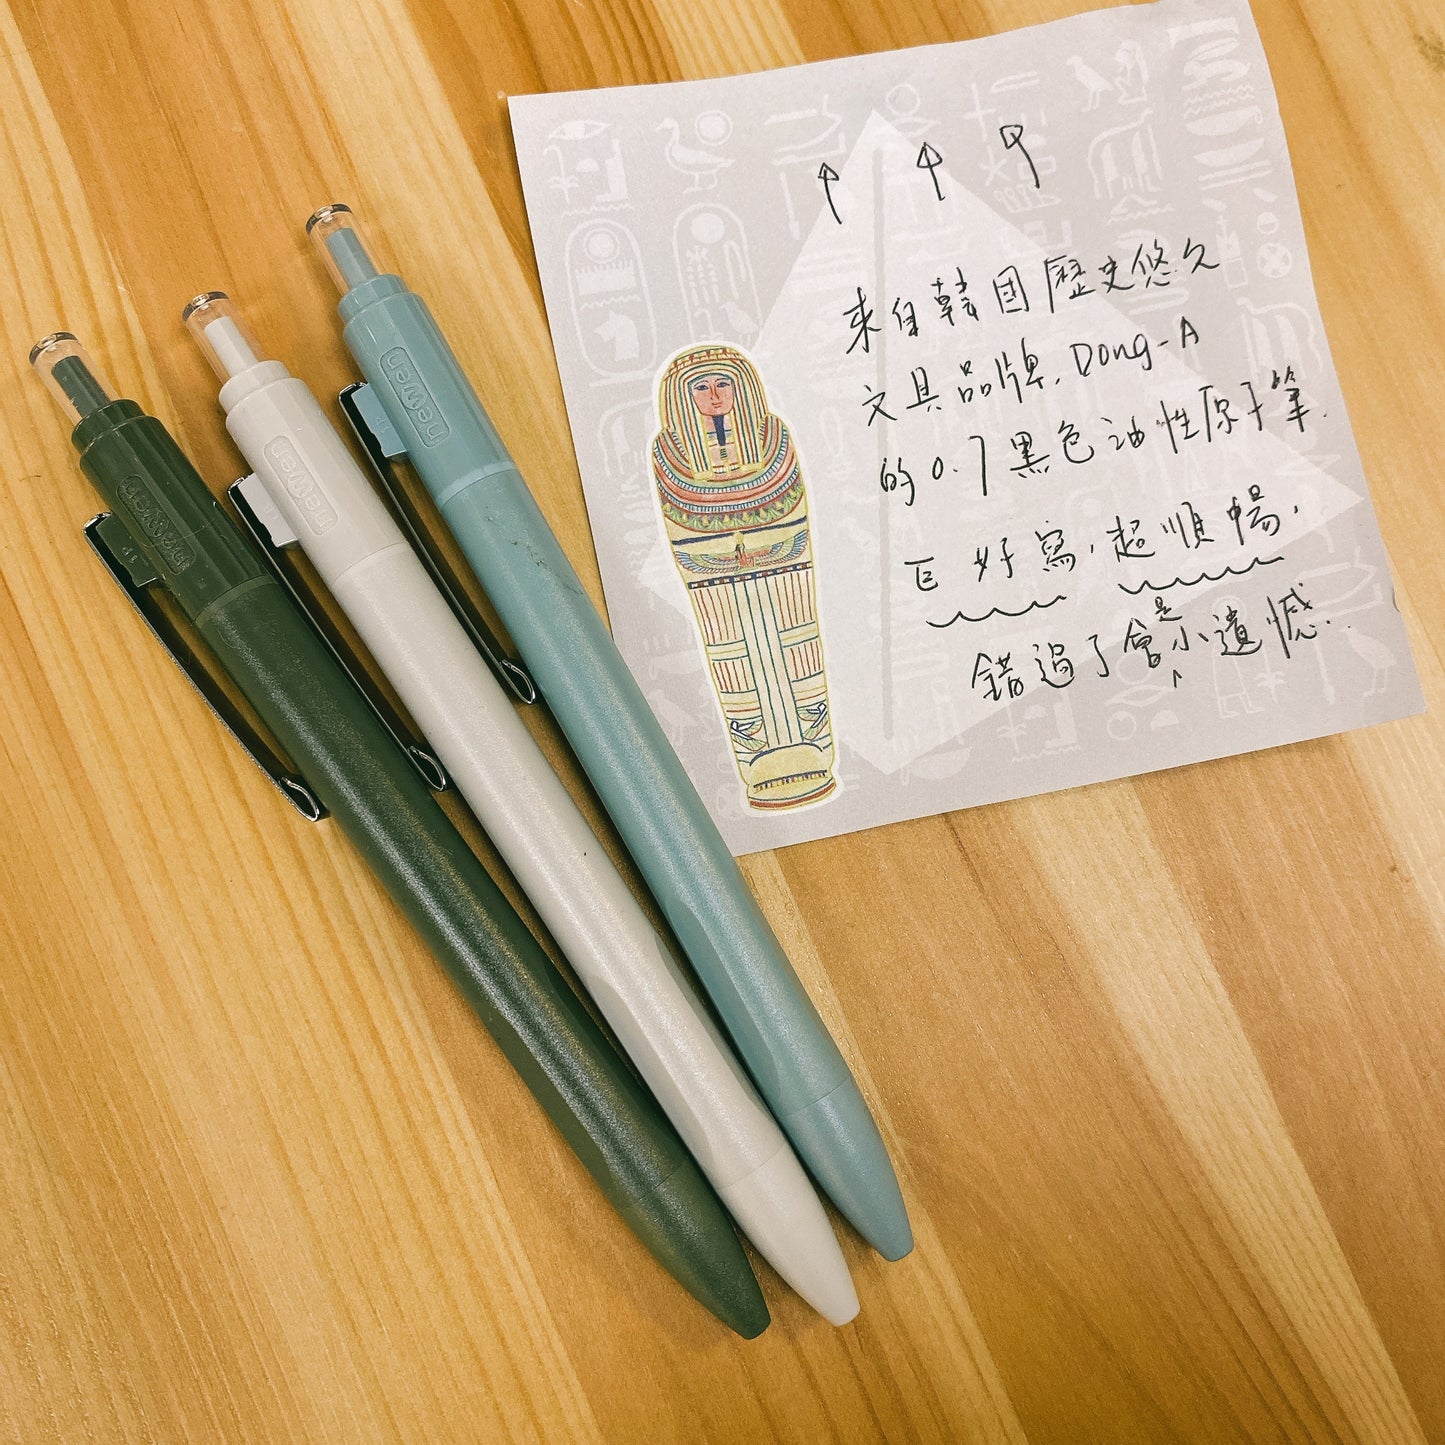 newen
newen
newen
來自韓国歷史悠久
文具品牌,Dong-A
的0.7黑色油性原子筆.
好寫,超順暢,
錯過了會是小遺憾...